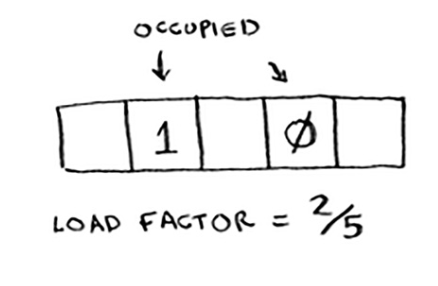 OCCUPIED
1 0
LOAD FACTOR = 2/5